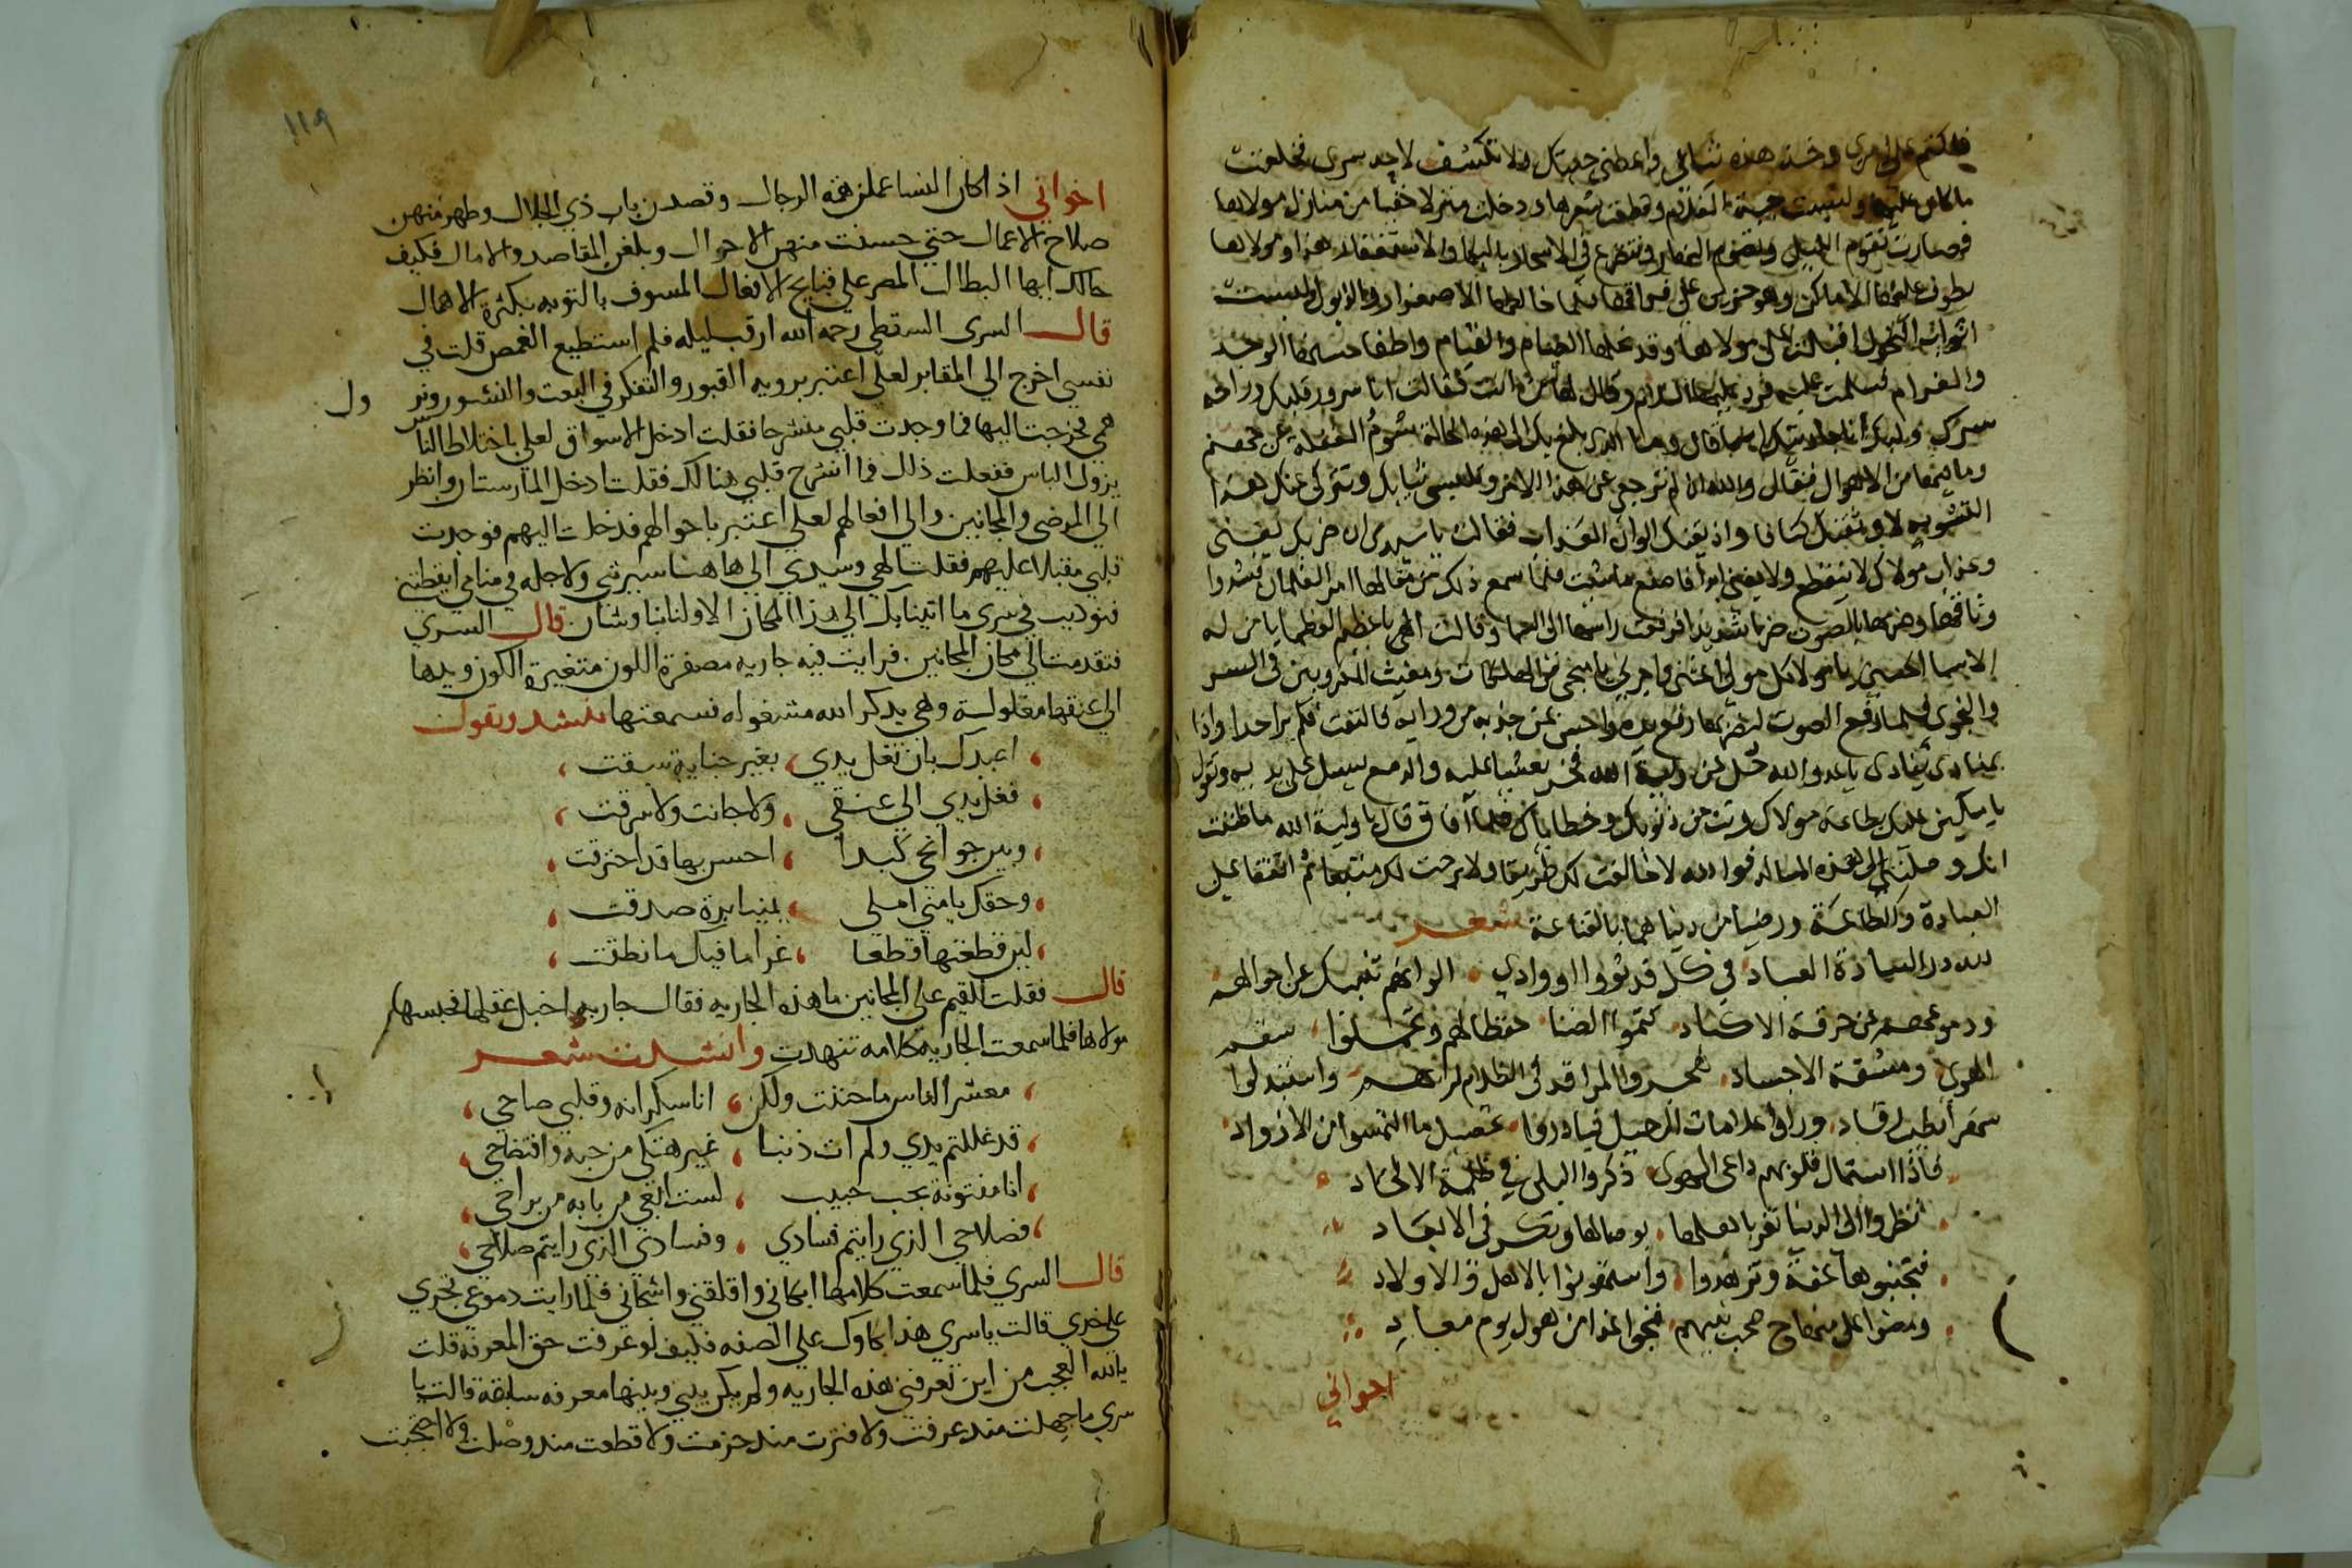 فاكتم علي امري وخذ هذه ثيابي واعطني جبتك ولا تكشف لاحد سري فخلعت
ما كان عليها ولبست جبة الخادم وقطعت شعرها ودخلت منزلا خفيا من منازل مولاها
فصارت تقوم الليل وتصوم النهار وتتضرع في الاسحار بالبكا والاستغفار هذا ومولاها
يطوف عليها الاماكن وهو حزين علي فراقها فلما خالطها الاصفرار والذبول ولبست
اثواب النحول اقبلت علي مولاها وقد علاها الصيام والقيام واطفا حسنها الوجد
والغرام فسلمت عليه فرد عليها السلام وقال لها من انت فقالت انا سرور قلبك وراحة
سرك ولبك انا جاريتك قال وما الذي بلغ بك الي هذه الحالة
وما بعدها من الاهوال فقال والله ان لم ترجعي عن هذا الامر وتلبسي ثيابك وتتركي عنك هذا
التشويه لاوثقنك كتافا واذيقنك الوان العذاب فقالت يا سيدي ان ضربك يفني
وعذاب مولاي لا ينقطع ولا يفني ابدا فاصنع ما شئت فلما سمع ذلك من مقالها امر الغلمان فشدوا
وثاقها وضربها بالصوت ضربا شديدا فرفعت راسها الي السما وقالت الهي يا عظيم العظما يا من له
الاسما الحسني يا مولا كل مولي اغثني واجرني يا منجي من الهلكات ومغيث المكروبين في السر
والنجوي فلما رفع الصوت ليضربها رفع يده واحس بمن جذبه من ورايه فالتفت فلم يرا احدا واذا
بمنادي ينادي يا عدو الله خل عن ولية الله فخر مغشيا عليه والدمع يسيل علي خديه وتقول
يا مسكين عليك بطاعة مولاك وتب من ذنوبك وخطاياك فلما افاق قال يا ولية الله ما ظننت
انك وصلتي الي هذه المنزلة فوالله لا خالفت لك طريقا ولا برحت لك متبعا ثم اتفقا علي
العبادة والطاعة ورضيا من دنياهما بالقناعة شعر
لله در السادة العباد في كل قد ثووا او وادي الوانهم تنبيك عن احوالهم
ودموعهم عن حرقة الاكباد كتموا الضنا حفظا لهم وتحملوا سقم
الهوي ومشقة الاجساد هجروا المراقد في الظلام لربهم واستبدلوا
سهرا بطيب رقاد وراوا علامات الرحيل فبادروا تحصيل ما التمسوا من الازواد
فاذا استمال قلوبهم داعي الهوي ذكروا البلي في ظلمة الالحاد
نظروا الي الدنيا تغر باهلها بوصالها وتكر في الابعاد
فتجنبوها عفة وتزهدوا واستمونوا بالاهل والاولاد
ومضوا علي منهاج صحب نبيهم فنجوا غدا من هول يوم معاد
اخواني
١١٩
اخواني اذا كان النسا عملن همة الرجال وقصدن باب ذي الجلال وظهر منهن
صلاح الاعمال حتي حسنت منهن الاحوال وبلغن المقاصد والامال فكيف
حالك ايها البطال المصر علي قبايح الافعال المسوف بالتوبه بكثرة الاهمال
قال السري السقطي رحمه الله ارقت ليله فلم استطيع الغمض قلت في
نفسي اخرج الي المقابر لعلي اعتبر برويه القبور والتفكر في البعث والنشور ونزول
همي فخرجت اليها فما وجدت قلبي منشرحا فقلت ادخل الاسواق لعلي باختلاط الناس
يزول الباس ففعلت ذلك فما انشرح قلبي هنالك فقلت ادخل المارستان وانظر
الي المرضي والمجانين والي افعالهم لعلي اعتبر باحوالهم فدخلت اليهم فوجدت
قلبي مقبلا عليهم فقلت الهي وسيدي الي هاهنا سيرتني ولاجله في منامي ايقظتني
فنوديت في سري ما اتينا بك الي هذا المكان الا ولنا بنا وشان قال السري
فتقدمت الي مكان المجانين فرايت فيه جاريه مصفرة اللون متغيرة الكون ويدها
الي عنقها مغلولة وهي بذكر الله مشغوله فسمعتها تنشد وتقول
اعيدك بان تغل يدي بغير جناية سبقت
فغل يدي الي عنقي ولا خانت ولا سرقت
وبين جوانحي كبدا احس بها قد احترقت
وحقك يا مني املي يمينا برة صدقت
لين قطعتها قطعا غراما فيك ما نطقت
قال فقلت للقيم علي المجانين ما هذه الجاريه فقال جاريه اختبل عقلها فحبسها
مولاها فلما سمعت الجاريه كلامه تنهدت وانشدت شعر
معشر الناس ما جننت ولكن انا سكرانه وقلبي صاحي
قد غللتم يدي ولم ات ذنبا غير هتكي من حبه وافتضاحي
انا مفتونة بحب حبيب لست ابغي من بابه من براحي
فصلاحي الذي رايتم فسادي وفسادي الذي رايتم صلاحي
قال السري فلما سمعت كلامها ابكاني واقلقني واشجاني فلما رايت دموعي تجري
علي خدي قالت يا سري هذا بكاوك علي الصفه فكيف لو عرفت حق المعرفه قلت
يالله العجب من اين تعرفني هذه الجاريه ولم يكن بيني وبينها معرفه سابقة قالت يا
سري ما جهلت منذ عرفت ولا فترت منذ حزمت ولا قطعت منذ وصلت ولا احتجبت